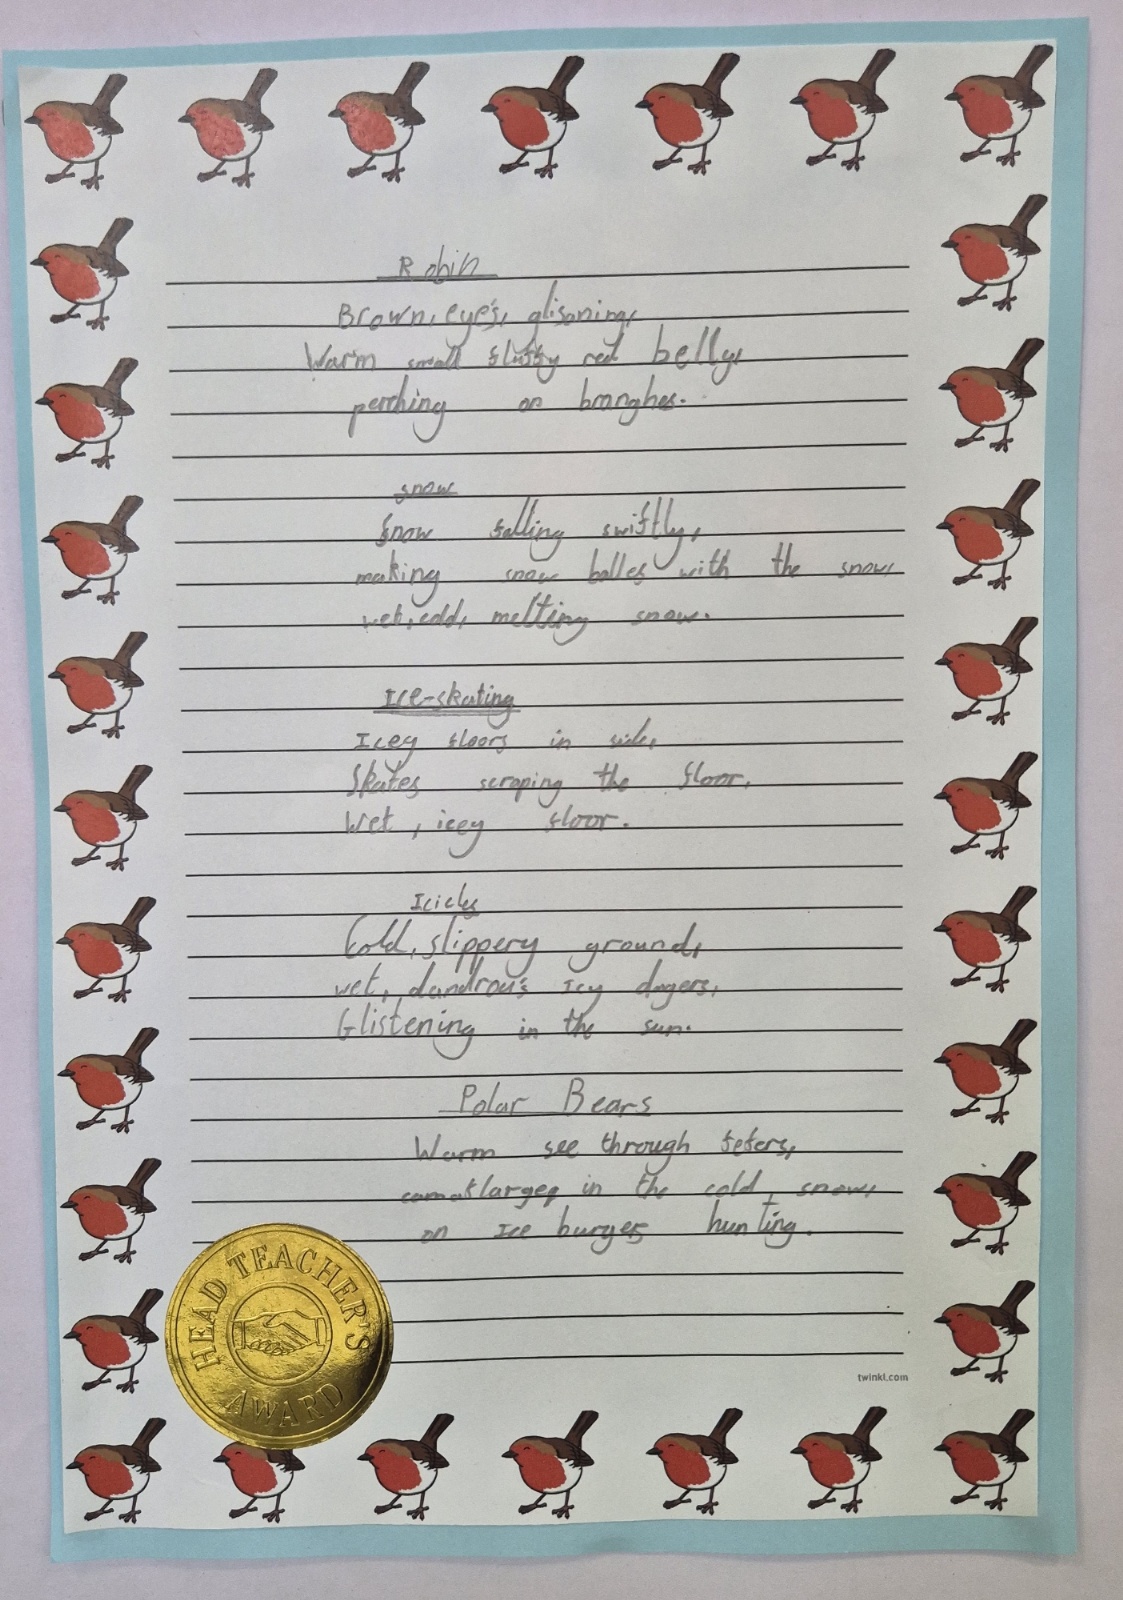 Robin
Brown, eye's, glisoning,
Warm small fluffy red belly,
perching on branghes.
snow
Snow falling swiftly,
making snow balles with the snow,
wet, cold, melting snow.
Ice-skating
Icey floors in side,
Skates scraping the floor,
Wet, icey floor.
Icicles
Cold, slippery ground,
wet, dandrou's Icy dagers,
Glistening in the sun.
Polar Bears
Warm see through fefers,
in the cold snow,
on Ice burges hunting.
HEAD TEACHER'S
AWARD
twinkl.com